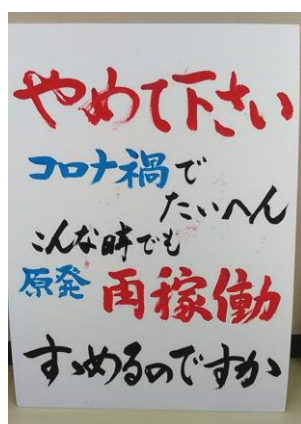 やめて下さい
コロナ禍で
たいへん
こんな時でも
原発 再稼働
すゝめるのですか